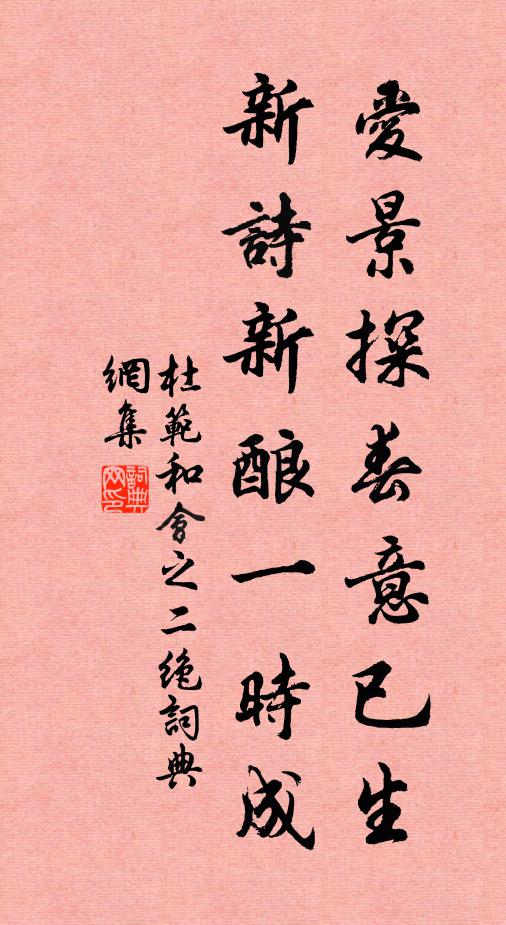 愛景探春意已生
新詩新酿一時成
杜範和會之二绝詞典
網集
詞典
网印